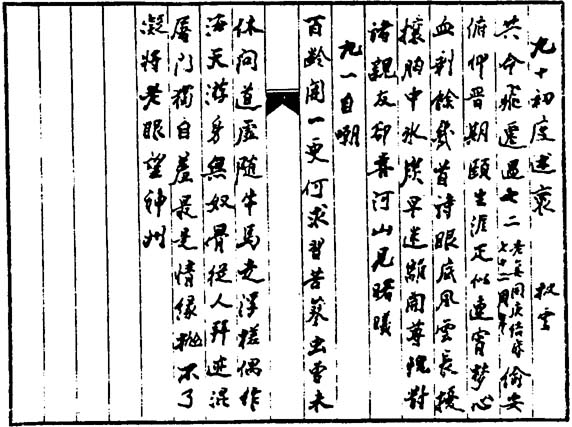 九十初度述衷 叔雲
共命飛遷過七二 老妻同庚结褵七十二周年 偷安
俯仰晋期頤生涯足似連宵夢心
血剩餘幾首詩眼底風雲長擾
攘胸中冰炭早迷離開尊愧對
諸親友却喜河山見曙曦
九一自嘲
百齡開一更何求習苦蓼虫曾未
休問道虛隨牛馬走浮槎偶作
海天游身無奴骨從人弃迹混
屠門獨自羞最是情緣抛不了
凝将老眼望神州